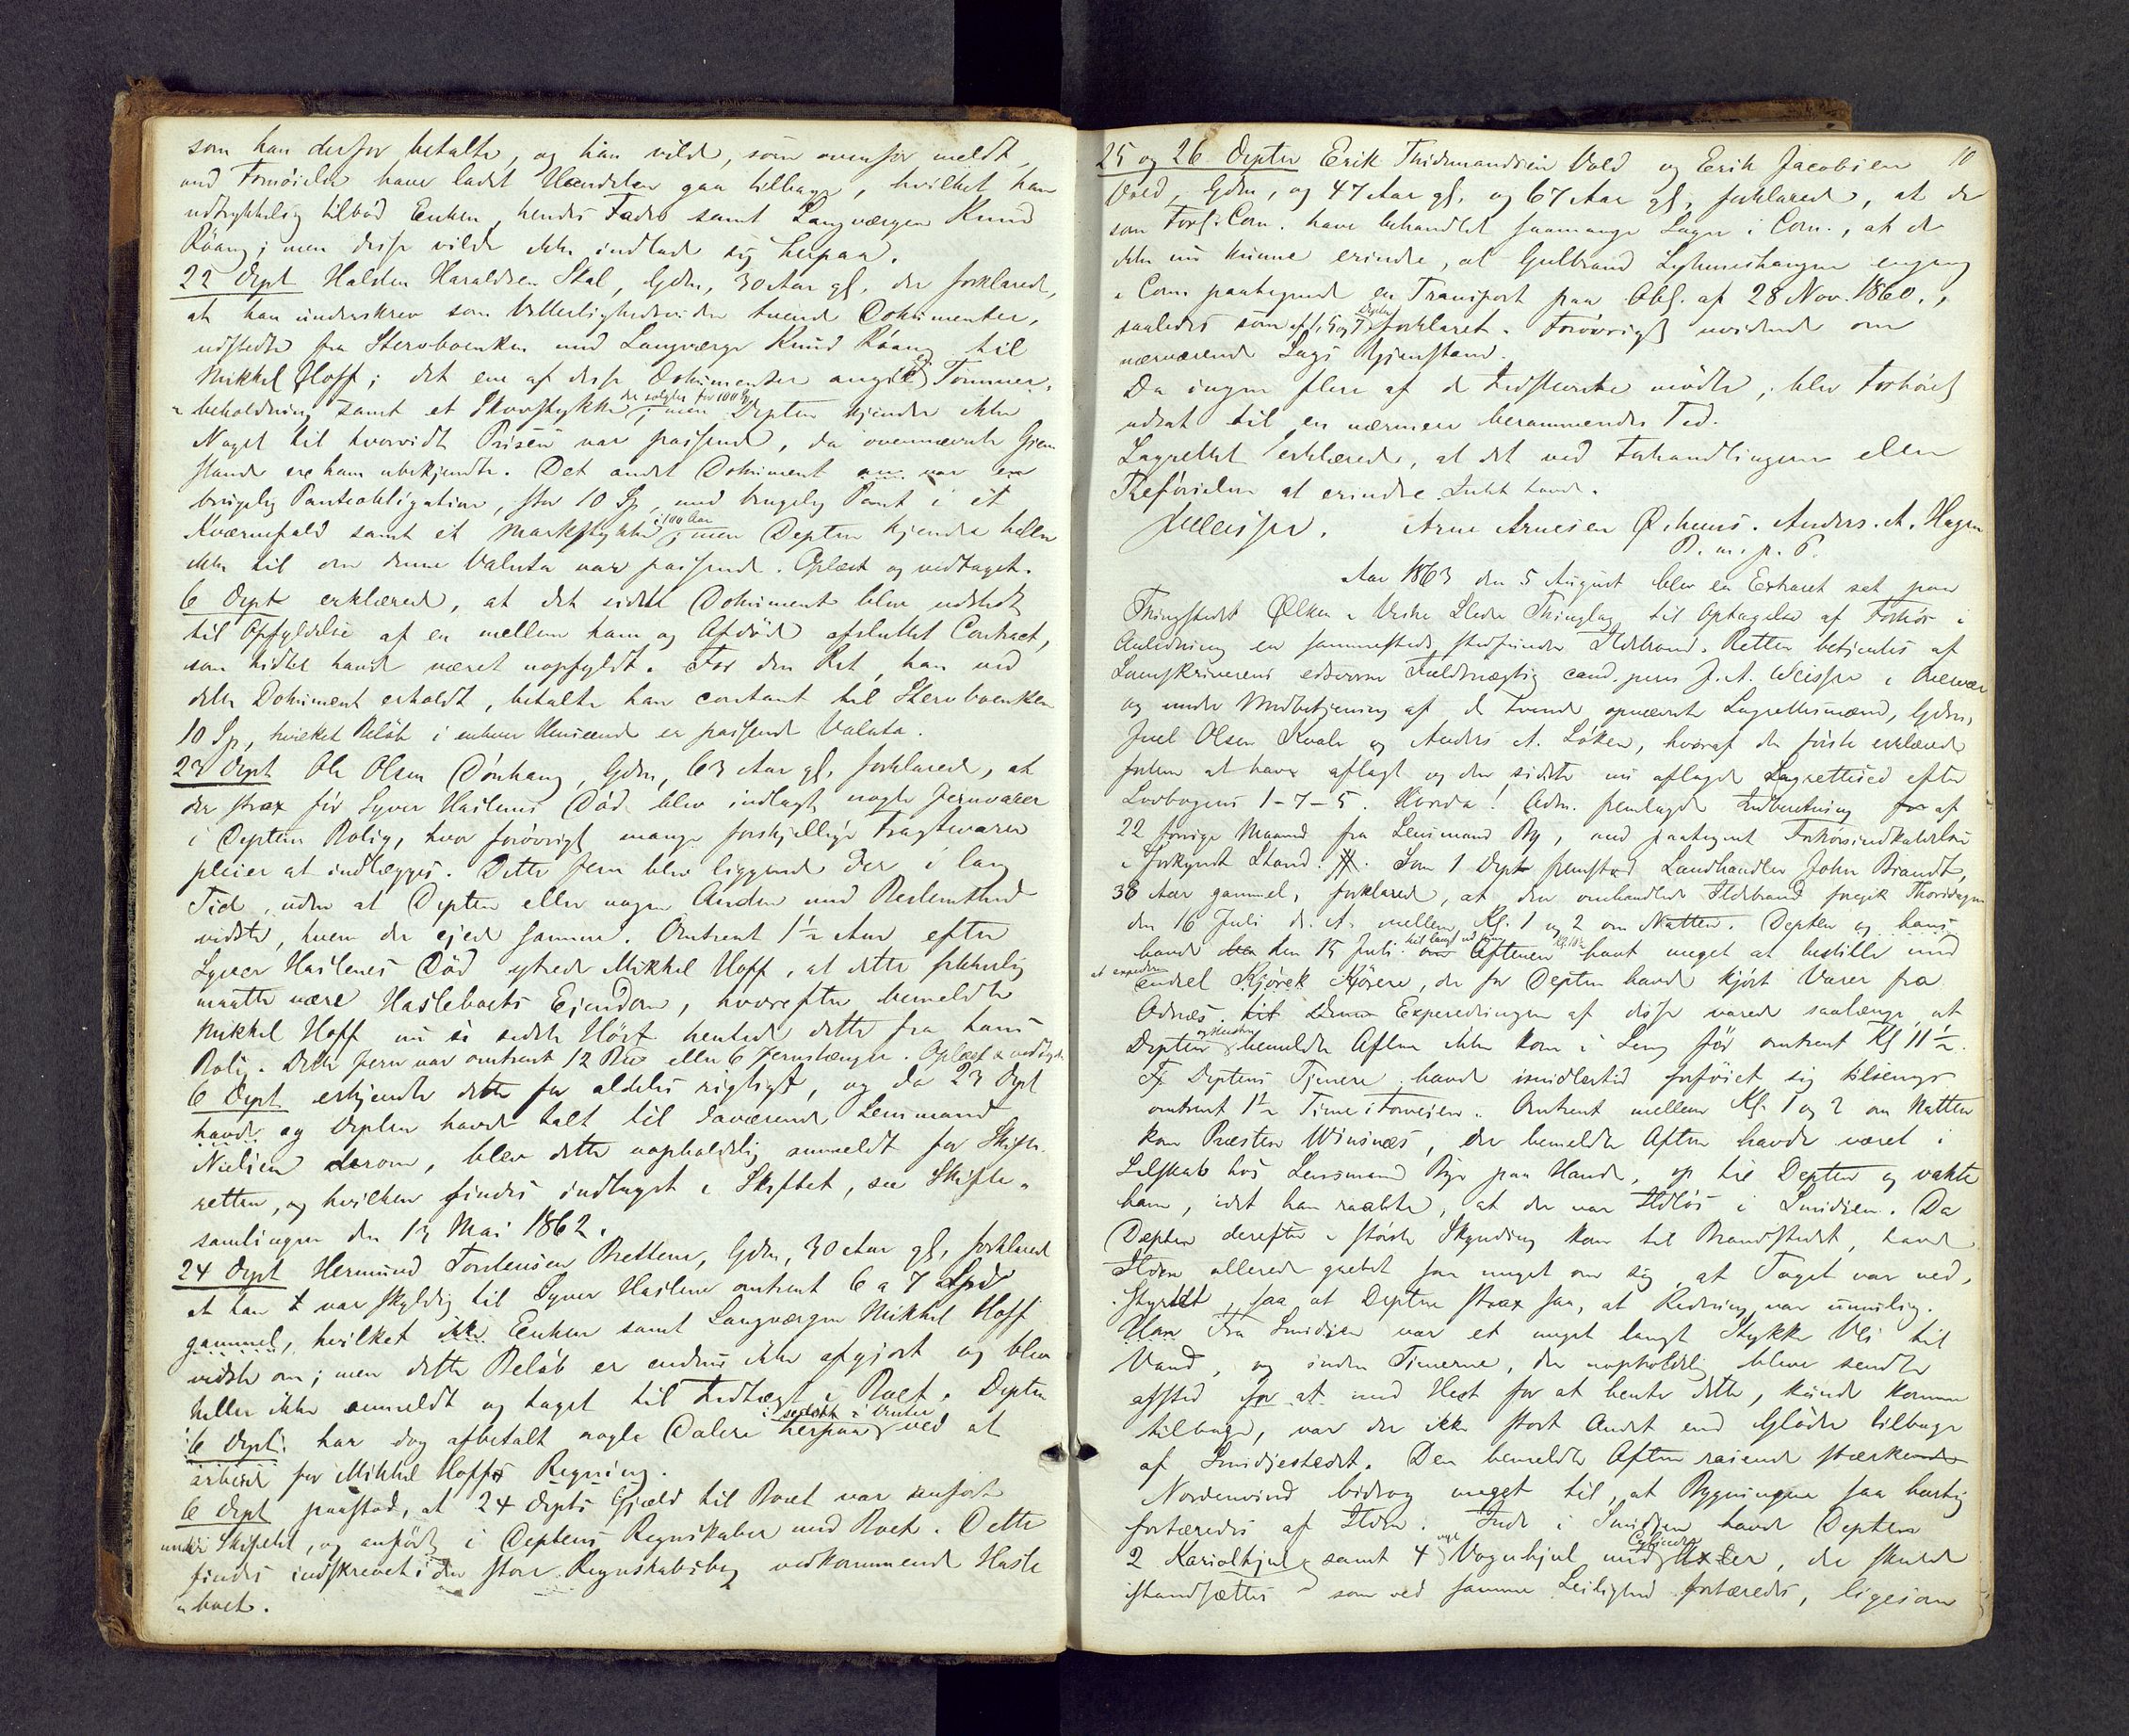 som han derfor betalte, og han vilde, som ovenfor meldt,
med Fornöielse have ladet Handelen gaa tilbage, hvilket han
udtrykkelig tilböd Enken, hendes Fader samt Laugværgen Knud
Röang; men disse vilde ikke indlade sig herpaa.
22 Dept Halden Haraldsen Skal, Gdm, 30 Aar gl. der forklarede,
at han underskrev som Vitterlighedsvidne tvende Dokumenter,
udstedte fra Stervboenken med Laugværge Knud Röang til
Mikkel Hoff; det ene af disse Dokumenter angik ei Tömmer-
beholdning samt et Skovstykke, der solgtes for 100 Sp; men Depten kjender ikke
Noget til hvorvidt Prisen var passende, da ovennævnte Gjen
stande ere ham ubekjendte. Det andet Dokument var en
brugelig Panteobligation, stor 10 Sp, med brugelig Pant i et
Kværnefald samt et Markstykke i 100 Aar; men Depten kjender heller
ikke til om denne Valuta var passende. Oplæst og vedtaget.
6 Dept erklærede, at det sidste Dokument blev udstedt
til Opfyldelse af en mellem ham og Afdöde afsluttet Contract,
som hidtil havde været uopfyldt. For den Ret, han ved
dette Dokument erholdt, betalte han contant til Stervboenken
10 Sp, hvilket Belöb i enhver Henseende er passende Valuta.
23 Dept Ole Olsen Dönhaug, Gdm, 63 Aar gl, forklarede, at
der strax för Syver Haslenes Död blev indlagt nogle Jernvarer
i Deptens Bolig, hvor forövrigt mange forskjellige Fragtvarer
pleier at indlægges. Dette Jern blev liggende der i lang
Tid, uden at Depten eller nogen Anden med Bestemthed
vidste, hvem der ejede samme. Omtrent 1½ Aar efter
Syver Haslenes Död ytrede Mikkel Hoff, at dette sikkerlig
maatte være Hasleboets Ejendom, hvorefter bemeldte
Mikkel Hoff nu i sidste Höst hentede dette fra hans
Bolig. Dette Jern var omtrent 12 eller 6 Jernstænger. Oplæst & vedtaget
6 Dept erkjendte dette for aldeles rigtigt, og da 23 Dept
havde og Depten havde talt til daværende Lensmand
Nielsen derom, blev dette uopholdelig anmeldt for Skifte-
retten, og hvilken findes indtaget i Skiftet, se Skifte-
samlingen den 13 Mai 1862.
24 Dept Hermund Torstensen Brettene, Gdm, 30 Aar gl, forklarede
at han var skyldig til Syver Haslene omtrent 6 a 7 Spd
gammel, hvilket Enken samt Laugværgen Mikkel Hoff
vidste om; men dette Belöb er endnu ikke afgjort og blev
heller ikke anmeldt og taget til Indtægt i Boet. Depten
6 Dept. har dog afbetalt nogle Dalere herpaa i sidste Vinter ved at
arbeide for Mikkel Hoffs Regning.
6 Dept paastod, at 24 Depts Gjæld til Boet var anfört
under Skiftet, og anfördt i Deptens Regnskaber med Boet. Dette
findes indskrevet i den store Regnskabsbog vedkommende Hasle
boet.
25 og 26 Depter Erik Thidemandsen Vold og Erik Jacobsen 10
Vold, Gdm, og 47 Aar gl. og 67 Aar gl, forklarede, at de
som Forl. Com. have behandlet saamange Sager i Com., at de
ikke nu kunne erindre, at Gulbrand engang
i Com paategnede en Transport paa Obl. af 28 Nov. 1860,
saaledes som af 1, 5 og 7 Depter forklaret. Forövrigt uvidende om
nærværende Sags Gjenstand.
Da ingen flere af de Indstevnte mödte, blev Forhöret
udsat til en nærmere berammendes Tid.
Lagrettet erklærede, at det ved Forhandlingerne eller
Tilförselen at erindre Intet havde.
JAWeisser. Arne Arnesen Ö. Anders. A. Hagen
P. m. p. P.
Aar 1863 den 5 August blev en Extraret sat paa
Thingstedet Ölken i Vestre Slidre Thinglag til Optagelse af Forhör i
Anledning en sammesteds stedfunden Ildebrand. Retten betjentes af
Sorenskriverens edsvorne Fuldmægtig cand. juris J. A. Weisser i
og under Medbetjening af de tvende opnævnte Lagrettesmænd, Gdm,
Juel Olsen Kvale og Anders A. Löken, hvoraf den förste erklærede
forhen at have aflagt og den sidste nu aflagde Lagretteseed efter
Lovbogens 1-7-5. Hvorda! Adm. fremlagde Indberetning for af
22 forrige Maaned fra Lensmand By, med paategnet Forhörsindkaldelse
i forkyndt Stand. Som 1 Dept fremstod Landhandler John Brandt,
38 Aar gammel, forklarede, at den omhandlede Ildebrand foregik Thorsdagen
den 16 Juli d. A. mellem Kl. 1 og 2 om Natten. Depten og hans
havde den 15 Juli til langt ud paa Aftenen Kl. 10½ havt meget at bestille med
at expedere endel Kjörere, der for Depten havde kjört Varer fra
Odnæs. Expederingen af disse varede saalænge at
Depten og Hustru bemeldte Aften ikke kom i Seng för omtrent Kl 11½.
Deptens Tjenere havde imidlertid forföiet sig tilsengs
omtrent 1½ Time i Forveien. Omtrent mellem Kl. 1 og 2 om Natten
kom Præsten Winsnæs, der bemeldte Aften havde været i
Selskab hos Lensmand Bye paa Hande, op til Depten og vakte
ham, idet han raabte, at der var Ildlös i Smidien. Da
Depten derefter i störste Skynding kom til Brandstedet, havde
Ilden allerede grebet saa meget om sig, at Taget var ned-
styrtet, saa at Depten strax saa, at Redning var umulig.
Fra Smidien var et meget langt Stykke Vei til
Vand, og inden Tjenerne, der uopholdelig bleve sendte
afsted for at med Hest for at hente dette, kunde komme
tilbage, var der ikke stort Andet end Glöder tilbage
af Smidjestedet. Den bemeldte Aften rasende stærke
Nordenvind bidrog meget til, at Bygningen saa hurtig
fortæredes af Ilden. Inde i Smidjen havde Depten
2 Kariolhjul, samt 4 nye Vognhjul med Cylinder Axler, der skulde
istandsættes som ved samme Leilighed fortæredes, ligesom